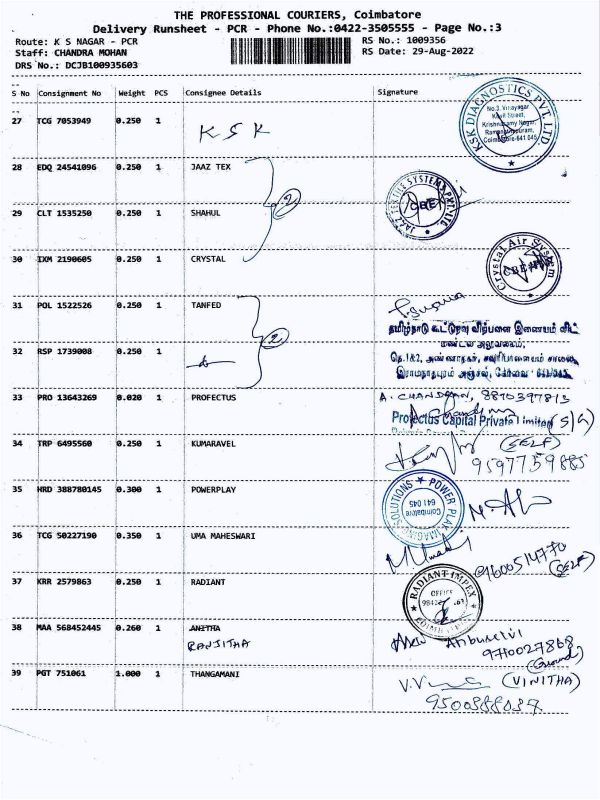 THE PROFESSIONAL COURIERS, Coimbatore
Delivery Runsheet - PCR - Phone No.:0422-3505555 - Page No.:3
Route: K S NAGAR - PCR
RS No.: 1009356
Staff: CHANDRA MOHAN
RS Date: 29-Aug-2022
DRS No.: DCJB100935603
S No Consignment No Weight PCS Consignee Details Signature
27 TCG 7053949 0.250 1 KSK
KSK DIAGNOSTICS PVT. LTD
No.3, Vinayagar
Kovil Street,
Krishnasamy Nagar,
Ramanathapuram,
Coimbatore-641 045
28 EDQ 24541096 0.250 1 JAAZ TEX
JAAZ TEXTILE SYSTEMS PVT. LTD.
CBE
2
29 CLT 1535250 0.250 1 SHAHUL
30 IXM 2190605 0.250 1 CRYSTAL
Crystal Air System
31 POL 1522526 0.250 1 TANFED
2
தமிழ்நாடு கூட்டுறவு விற்பனை இணையம் லிட்
மண்டல அலுவலகம்,
32 RSP 1739008 0.250 1
33 PRO 13643269 0.020 1 PROFECTUS
A. CHANDRAN, 8870397813
Profectus Capital Private Limited (S/G)
34 TRP 6495560 0.250 1 KUMARAVEL
(SELF)
9597759885
35 HRD 388780145 0.300 1 POWERPLAY
POWER PLAY IMAGING SOLUTIONS
Coimbatore
641 045
36 TCG 50227190 0.350 1 UMA MAHESWARI
9600514770
(SELF)
37 KRR 2579863 0.250 1 RADIANT
RADIANT IMPEX
OFFICE
38 MAA 568452445 0.260 1 ANITHA
RANJITHA
Anbuselvi
9710027868
(Ground)
39 PGT 751061 1.000 1 THANGAMANI
(VINITHA)
9500388037